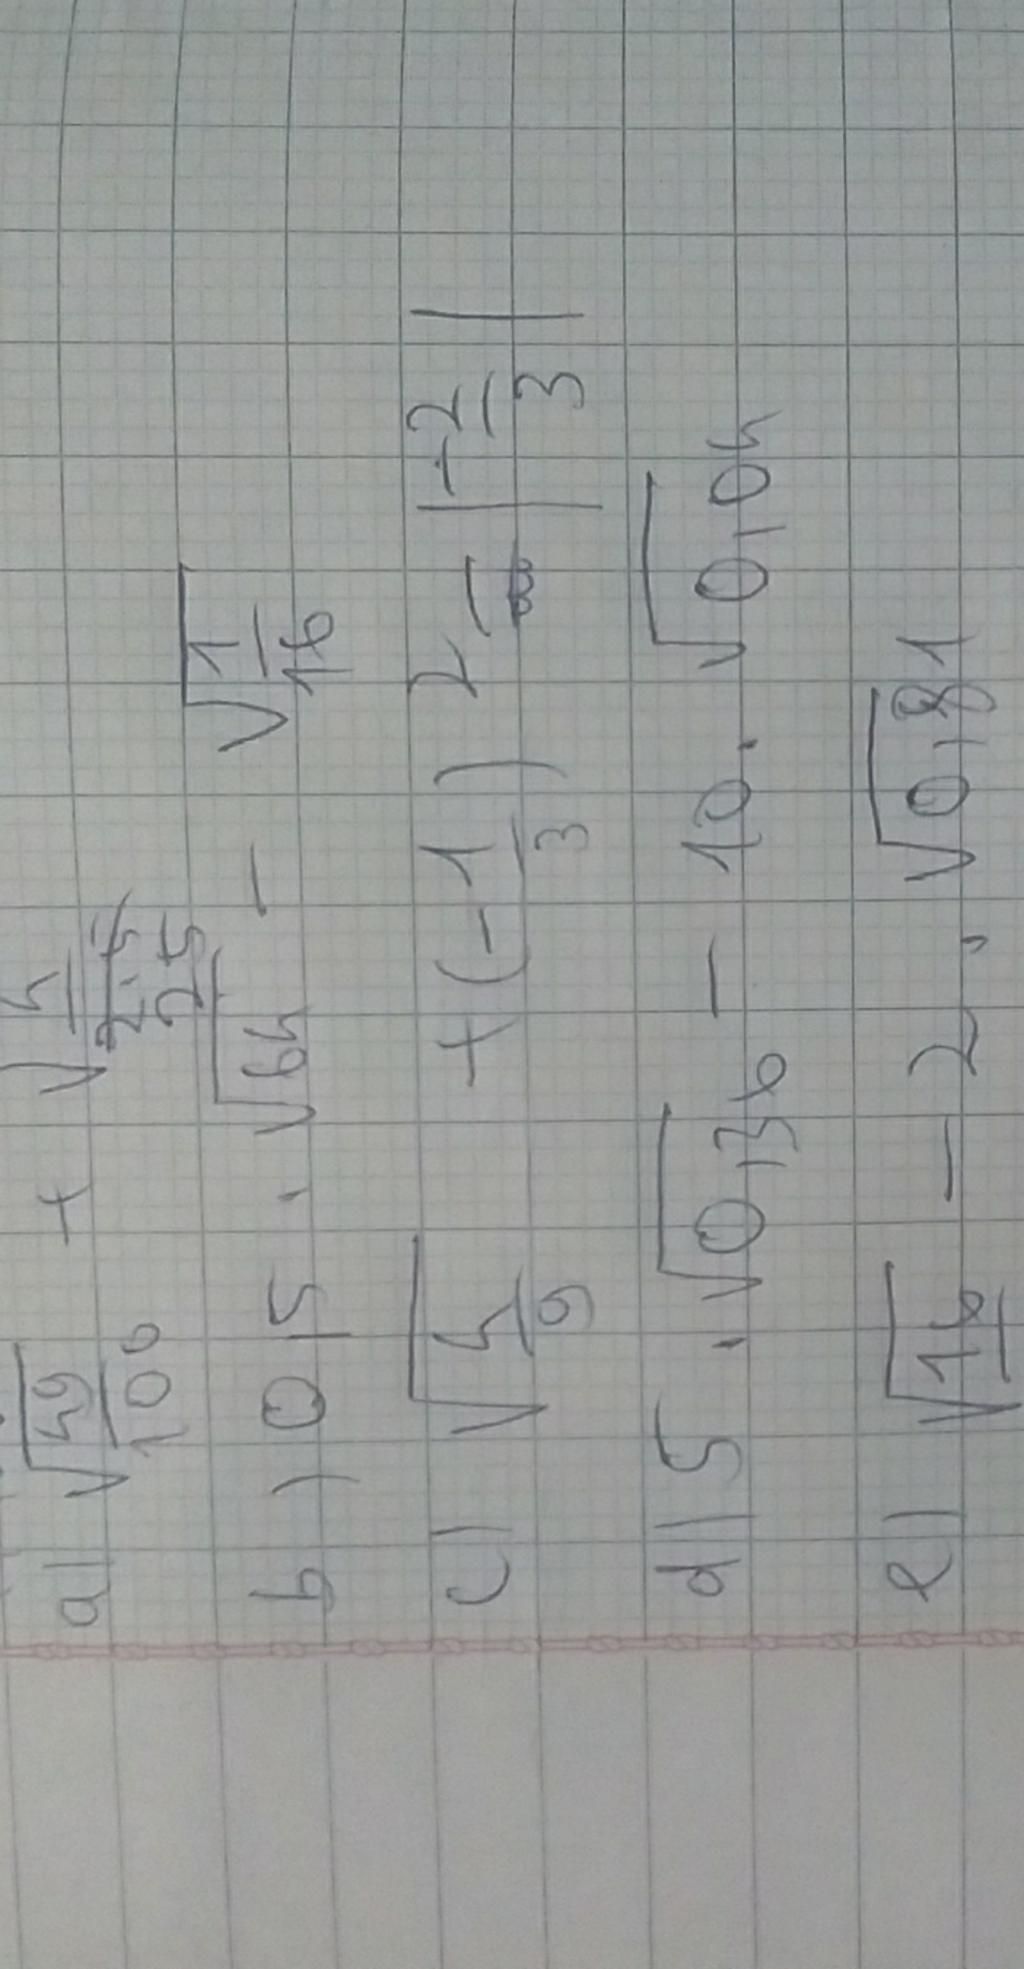 a) √(49/100) + √(4/25)
b) 0,5 . √64 - √(1/16)
c) √(4/9) + (-1/3)² - |-2/3|
d) 5 . √0,36 - 10 . √0,04
e) √16 - 2 . √0,81